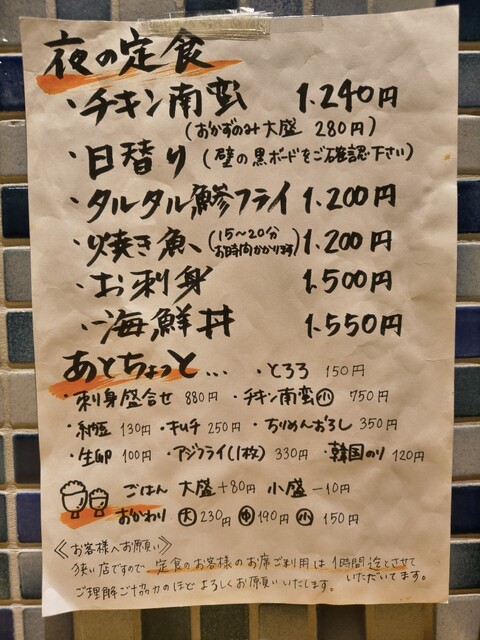 夜の定食
・チキン南蛮 1.240円
(おかずのみ大盛 280円)
・日替り (壁の黒ボードをご確認下さい)
・タルタル鯵フライ 1.200円
・焼き魚 (15〜20分お時間かかります) 1.200円
・お刺身 1.500円
・海鮮丼 1.550円
あとちょっと... ・とろろ 150円
・刺身盛合せ 880円 ・チキン南蛮小 750円
・納豆 130円 ・キムチ 250円 ・ちりめんおろし 350円
・生卵 100円 ・アジフライ(1枚) 330円 ・韓国のり 120円
ごはん 大盛+80円 小盛-10円
おかわり 大230円 中190円 小150円
《お客様へお願い》
狭い店ですので 定食のお客様のお席ご利用は 1時間迄とさせていただいてます。
ご理解ご協力のほど よろしくお願いいたします。